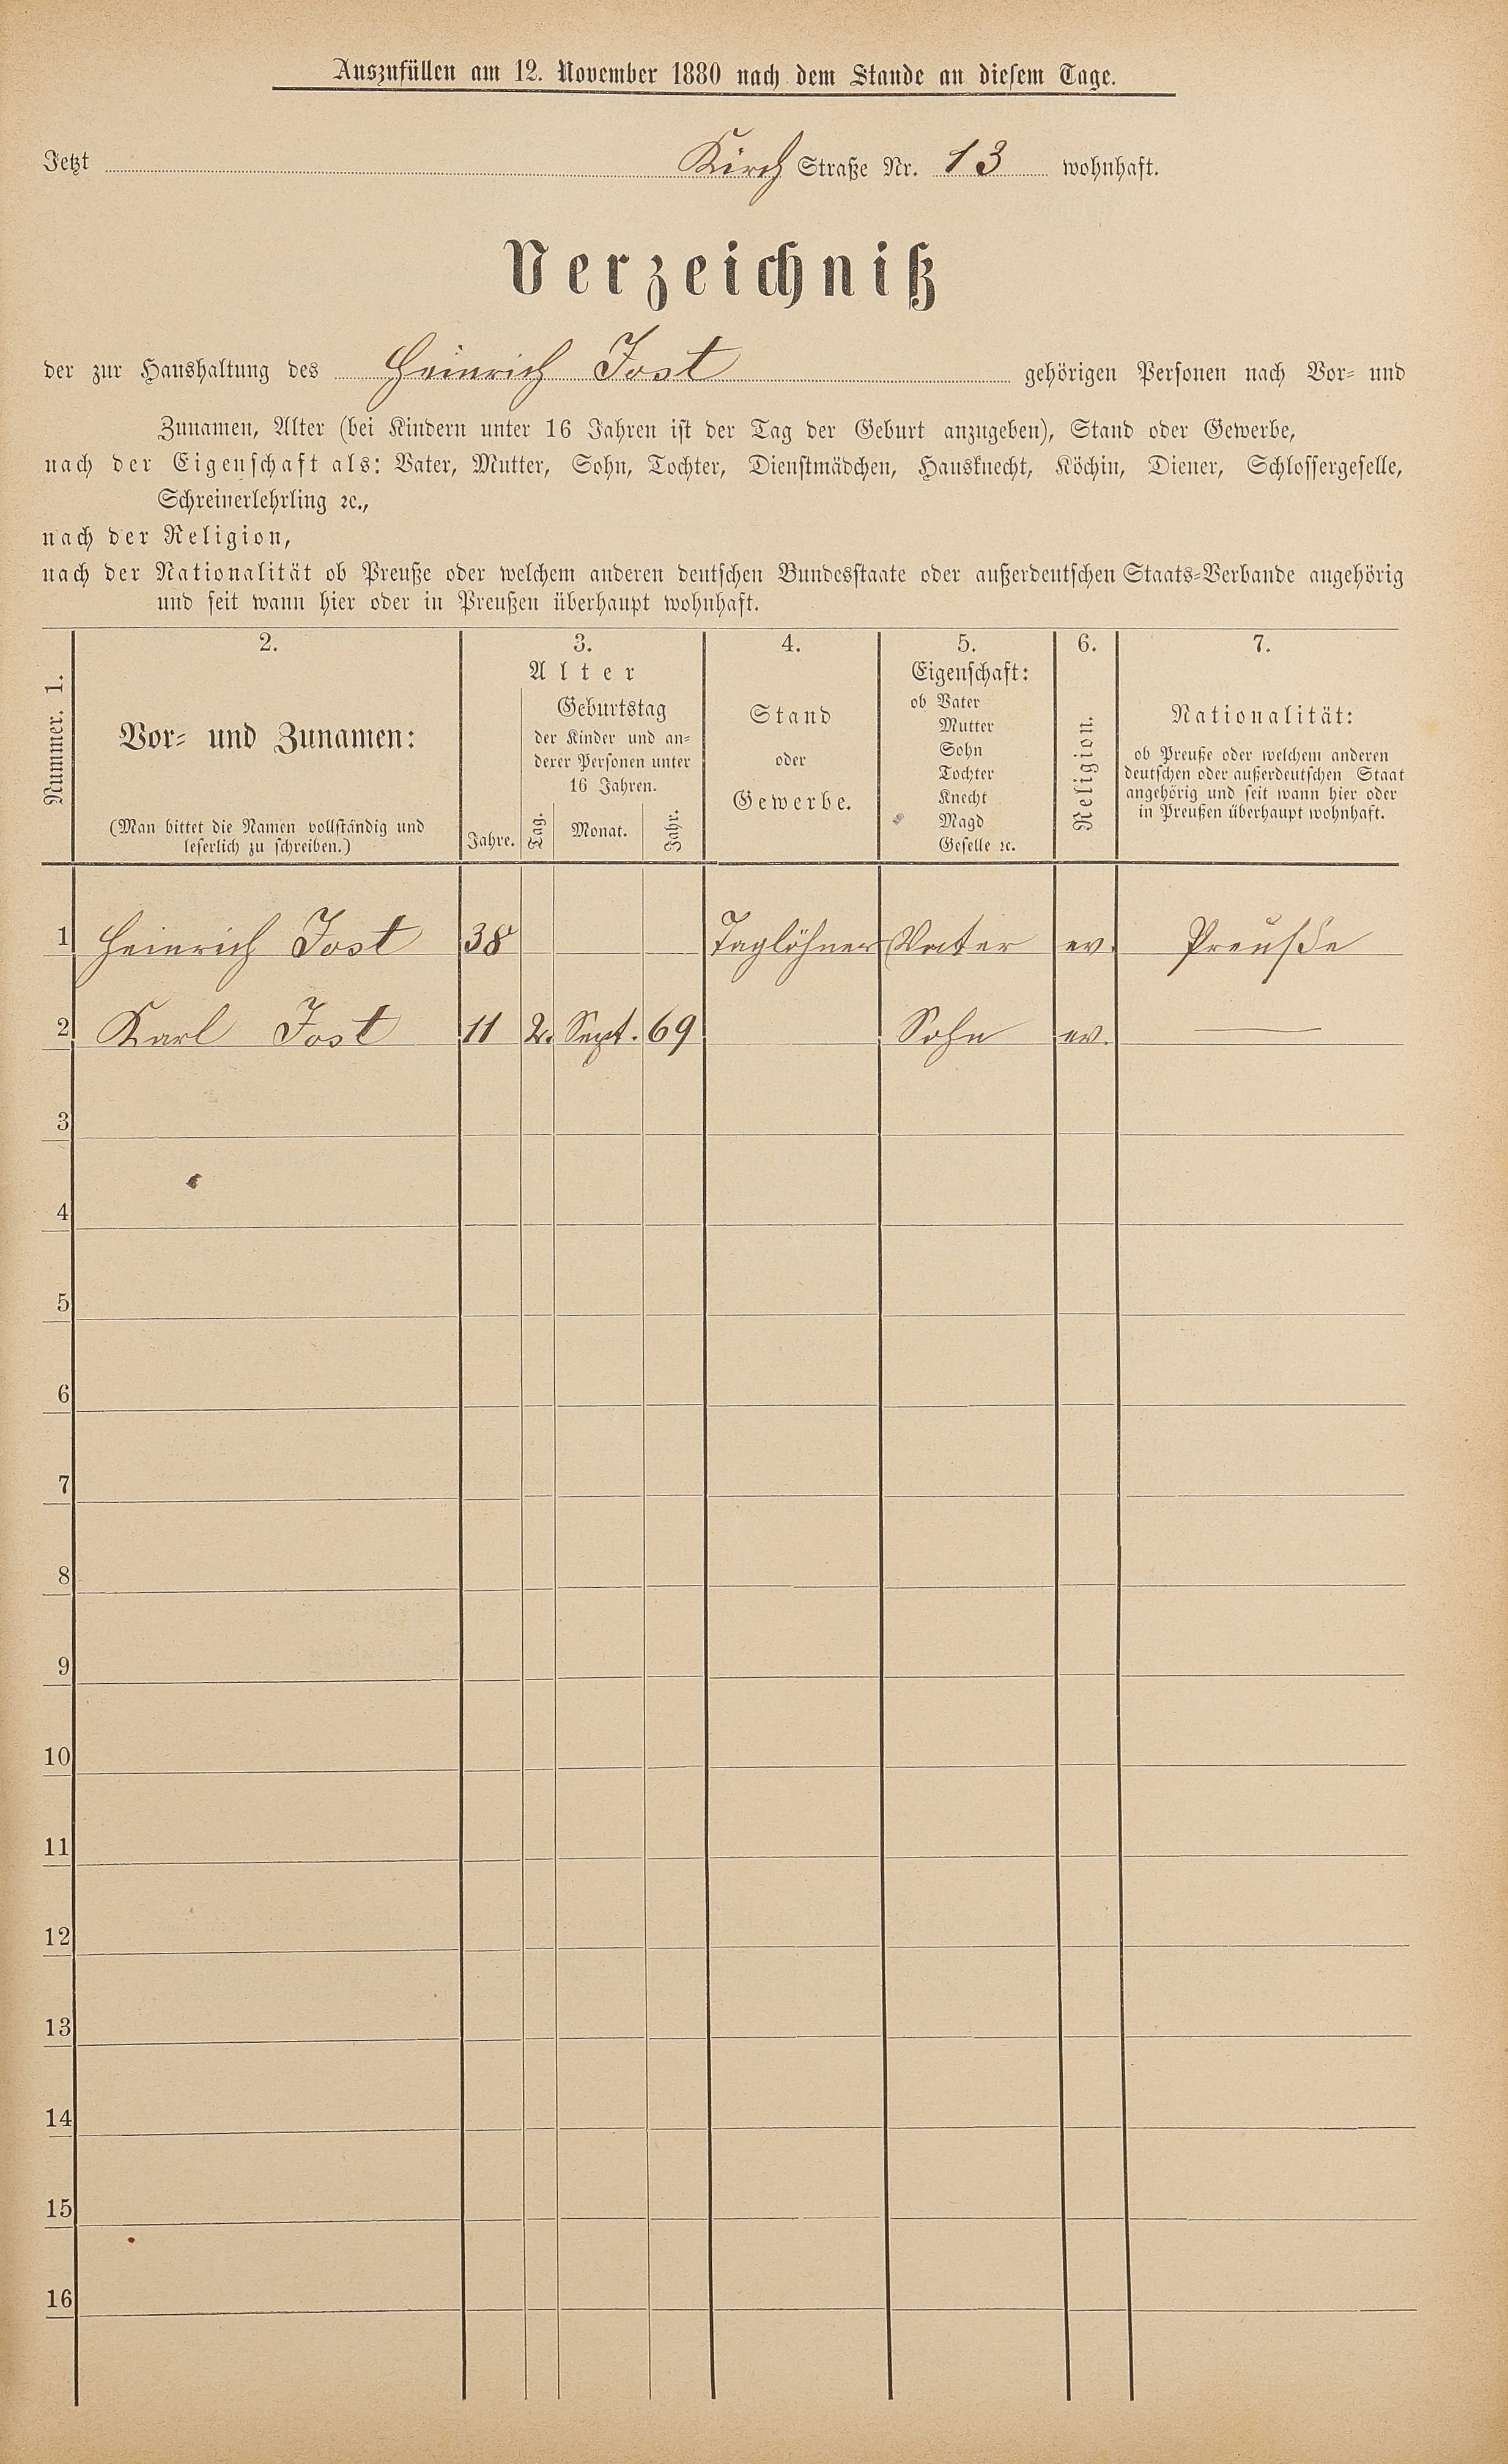 Auszufüllen am 12. November 1880 nach dem Stande an diesem Tage.
Jetzt Kirch Straße Nr. 13 wohnhaft.
Verzeichniß
der zur Haushaltung des Heinrich Jost gehörigen Personen nach Vor- und
Zunamen, Alter (bei Kindern unter 16 Jahren ist der Tag der Geburt anzugeben), Stand oder Gewerbe,
nach der Eigenschaft als: Vater, Mutter, Sohn, Tochter, Dienstmädchen, Hausknecht, Köchin, Diener, Schlossergeselle,
Schreinerlehrling ꝛc.,
nach der Religion,
nach der Nationalität ob Preuße oder welchem anderen deutschen Bundesstaate oder außerdeutschen Staats-Verbande angehörig
und seit wann hier oder in Preußen überhaupt wohnhaft.
Nummer. 1.
2.
Vor- und Zunamen:
(Man bittet die Namen vollständig und
leserlich zu schreiben.)
3.
Alter
Jahre.
Geburtstag
der Kinder und an-
derer Personen unter
16 Jahren.
Tag. Monat. Jahr.
4.
Stand
oder
Gewerbe.
5.
Eigenschaft:
ob Vater
Mutter
Sohn
Tochter
Knecht
Magd
Geselle ꝛc.
6.
Religion.
7.
Nationalität:
ob Preuße oder welchem anderen
deutschen oder außerdeutschen Staat
angehörig und seit wann hier oder
in Preußen überhaupt wohnhaft.
1 Heinrich Jost 38 Taglöhner Vater ev. Preuße
2 Karl Jost 11 2. Sept. 69 Sohn ev. —
3
4
5
6
7
8
9
10
11
12
13
14
15
16